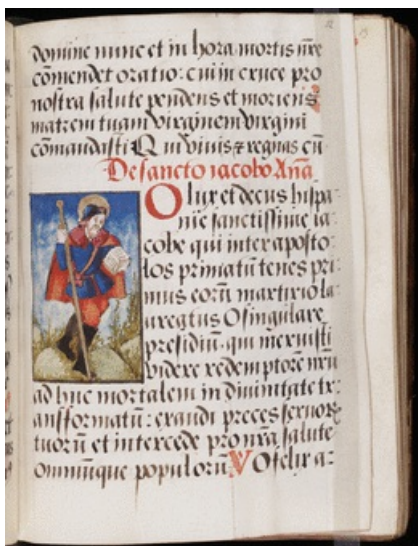 domine nunc et in hora mortis nr̄e
cōmendet oratio: cui in cruce pro
nostra salute pendens et moriens
matrem tuam virginem virgini
comandasti Qui vivis et regnas cū
De sancto iacobo Anā
O lux et decus hispa-
nie sanctissime ia-
cobe qui inter aposto
los primatū tenes pri-
mus eorū martirio la-
uregtus O singulare
presidiū. qui meruisti
videre redemptorē nr̄ū
ad huc mortalem in divinitate tr-
ansformatū: exaudi preces servor
tuorū et intercede pro nr̄a salute
omniumque populorū V O felix a: